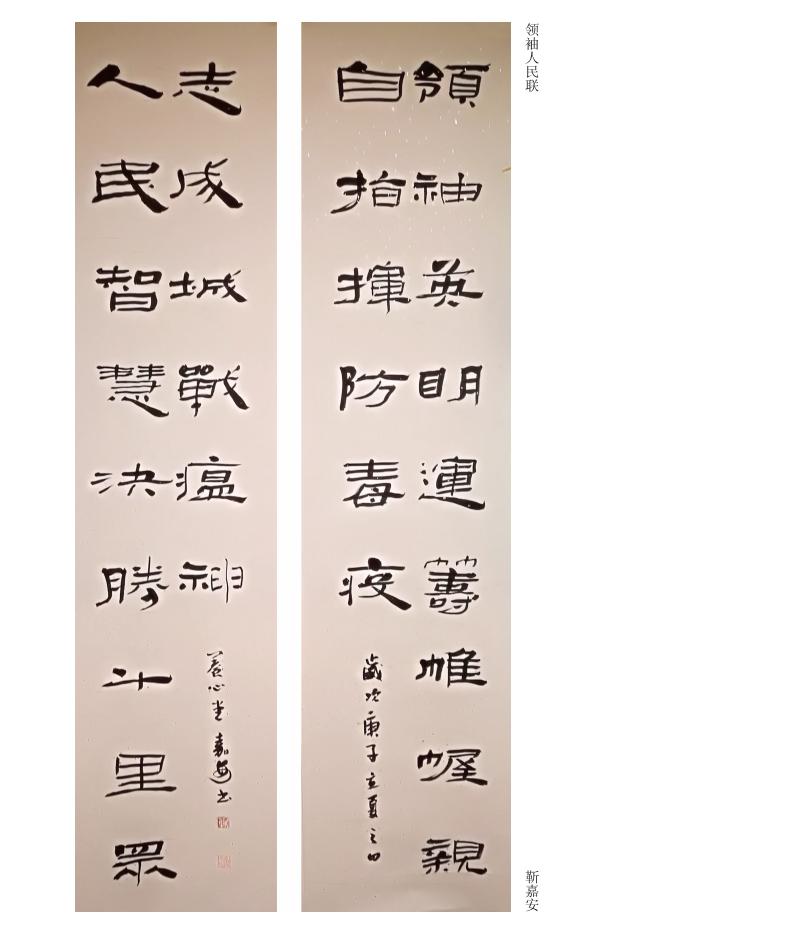 领袖人民联
靳嘉安
領袖英明運籌帷幄親
自指揮防毒疫
歲次庚子立夏之日
人民智慧決勝千里眾
志成城戰瘟神
養心堂嘉安书